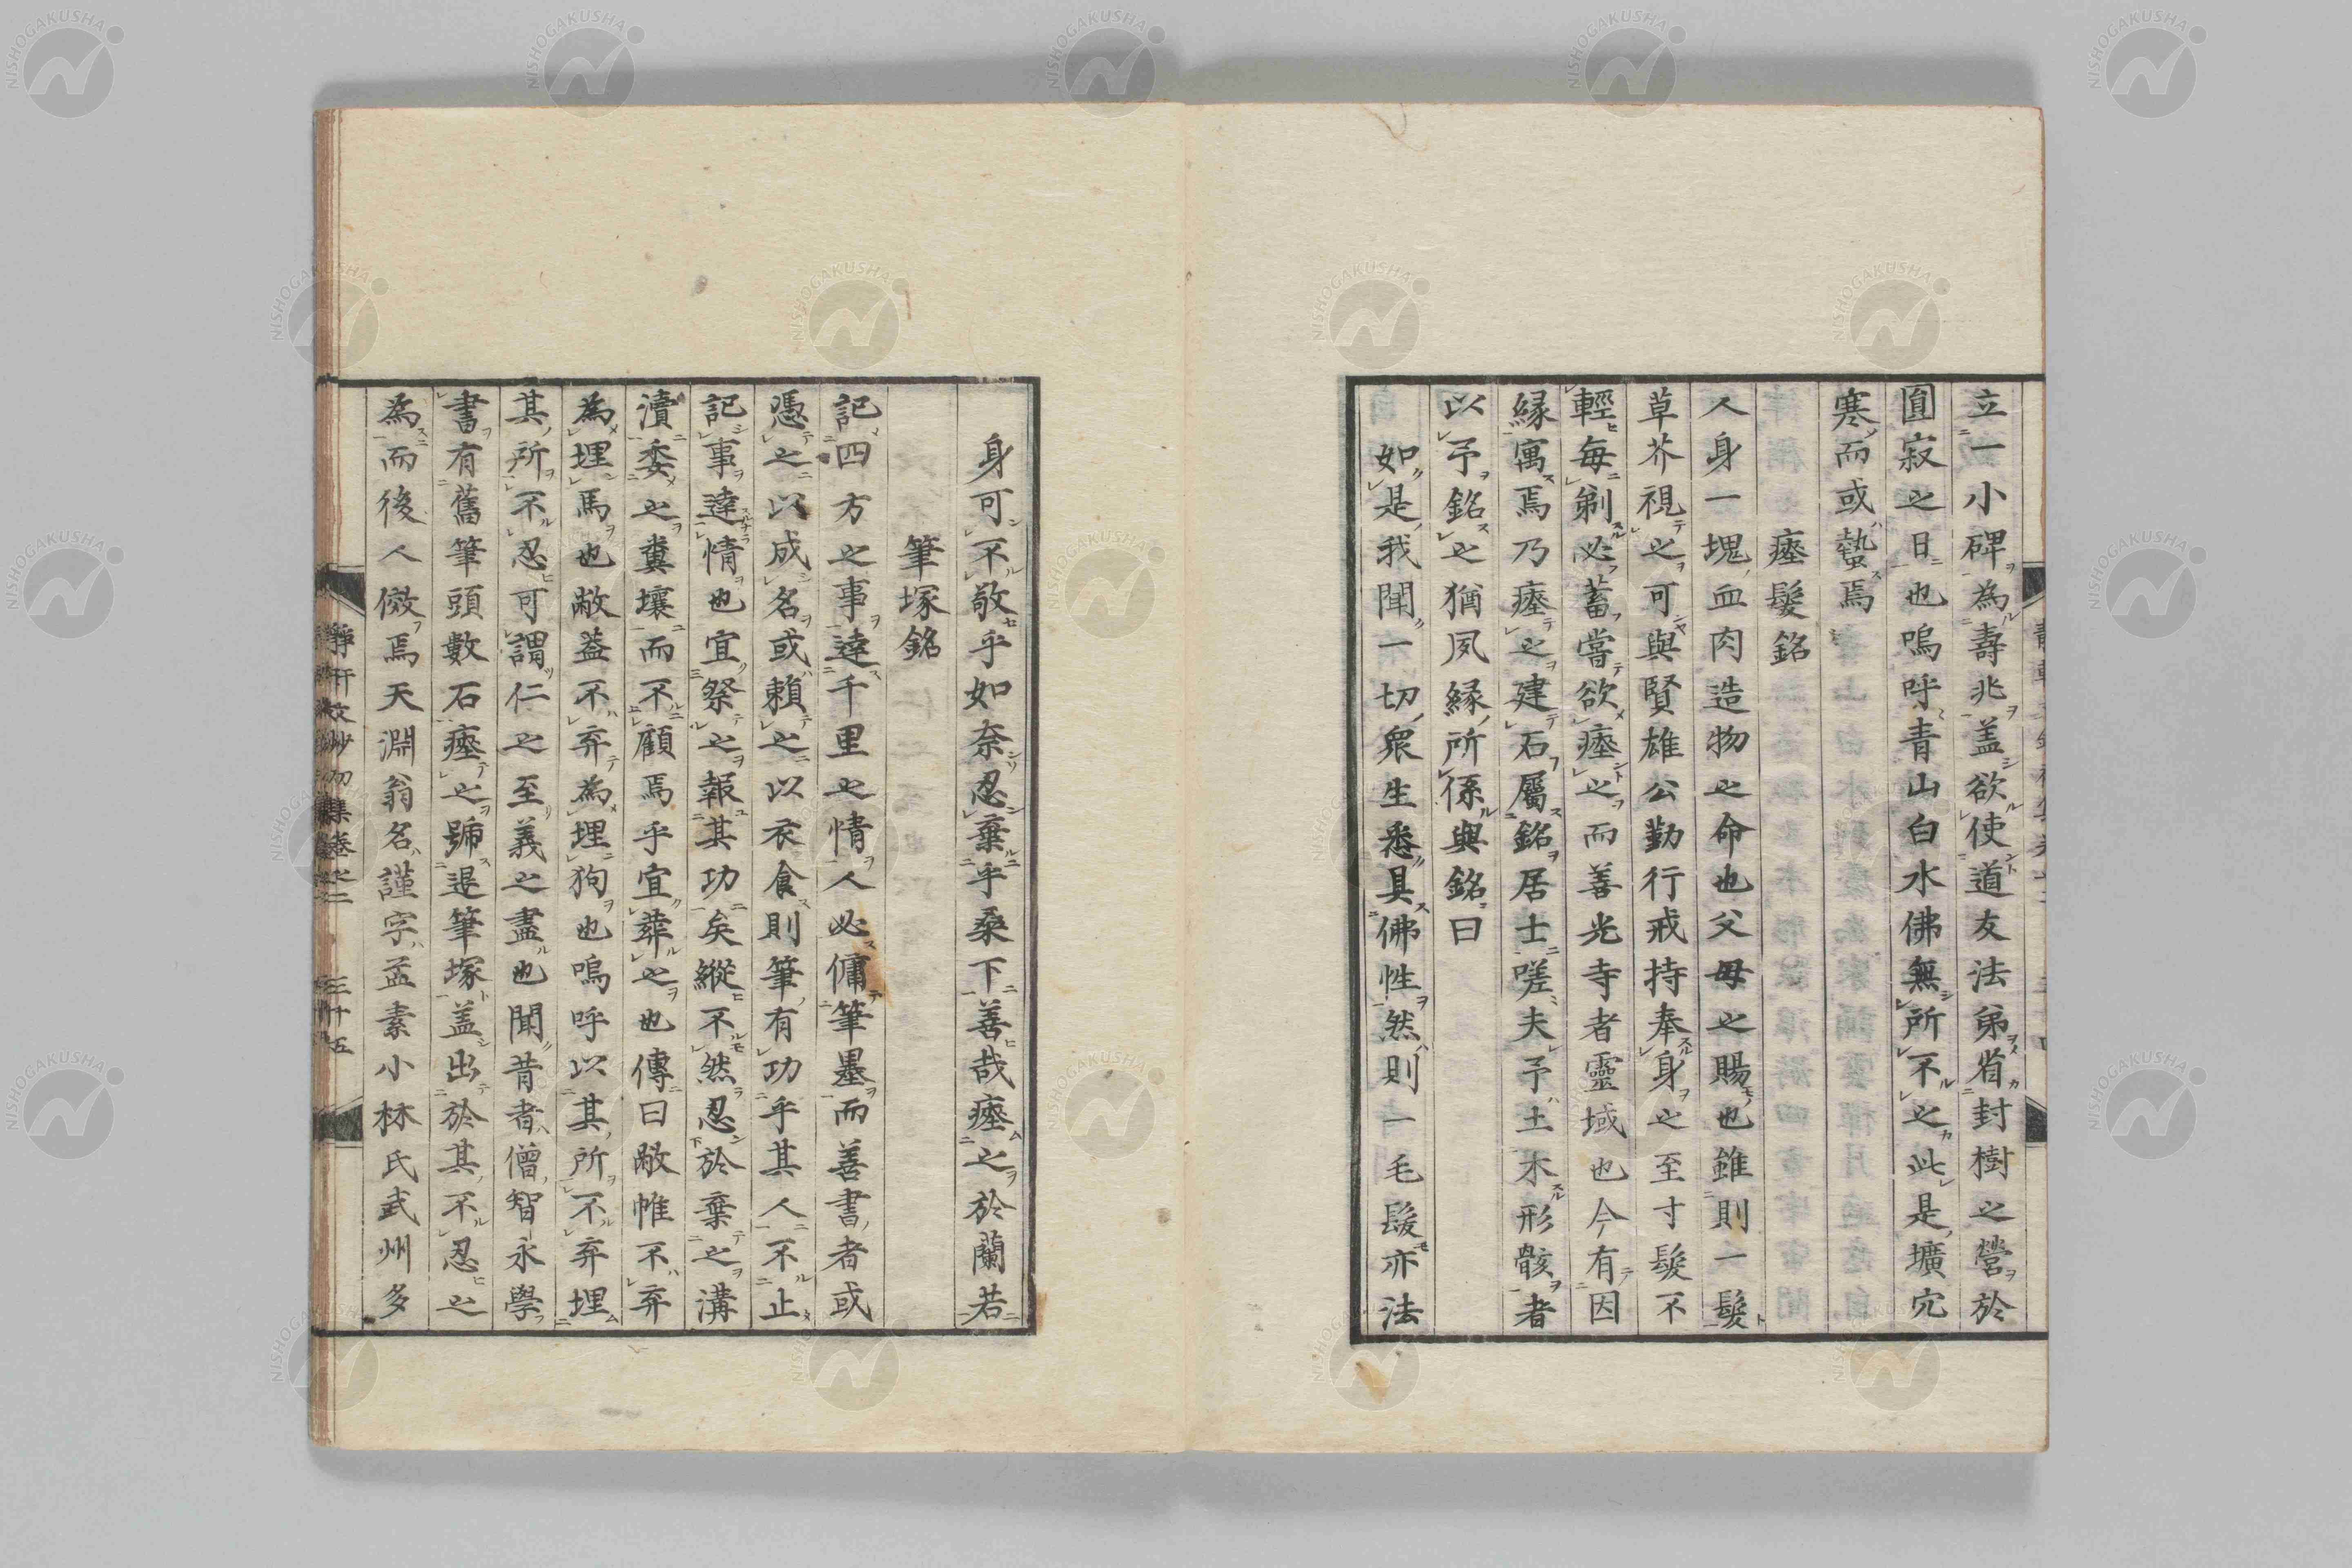 立一小碑為壽兆盖欲使道友法弟省封樹之營於
圓寂之日也嗚呼青山白水佛無所不之此是壙穴
寒而或蟄焉
瘞髮銘
人身一塊血肉造物之命也父母之賜也雖則一髮
草芥視之可與賢雄公勤行戒持奉身之至寸髮不
輕每剃必蓄嘗欲瘞之而善光寺者靈域也今有因
縁寓焉乃瘞之建石屬銘居士嗟夫予土木形骸者
以予銘之猶夙縁所係與銘曰
如是我聞一切衆生悉具佛性然則一毛髮亦法
身可不敬乎如奈忍棄乎桑下善哉瘞之於蘭若
筆塚銘
記四方之事達千里之情人必傭筆墨而善書者或
憑之以成名或賴之以衣食則筆有功乎其人不止
記事達情也宜祭之報其功矣縱不然忍於棄之溝
瀆委之糞壤而不顧焉乎宜葬之也傳曰敝帷不弃
為埋馬也敝蓋不弃為埋狗也嗚呼以其所不弃埋
其所不忍可謂仁之至義之盡也聞昔者僧智永學
書有舊筆頭數石瘞之號退筆塚盖出於其不忍之
為而後人倣焉天淵翁名謹字孟素小林氏武州多
静軒文鈔初集卷之二 三十五